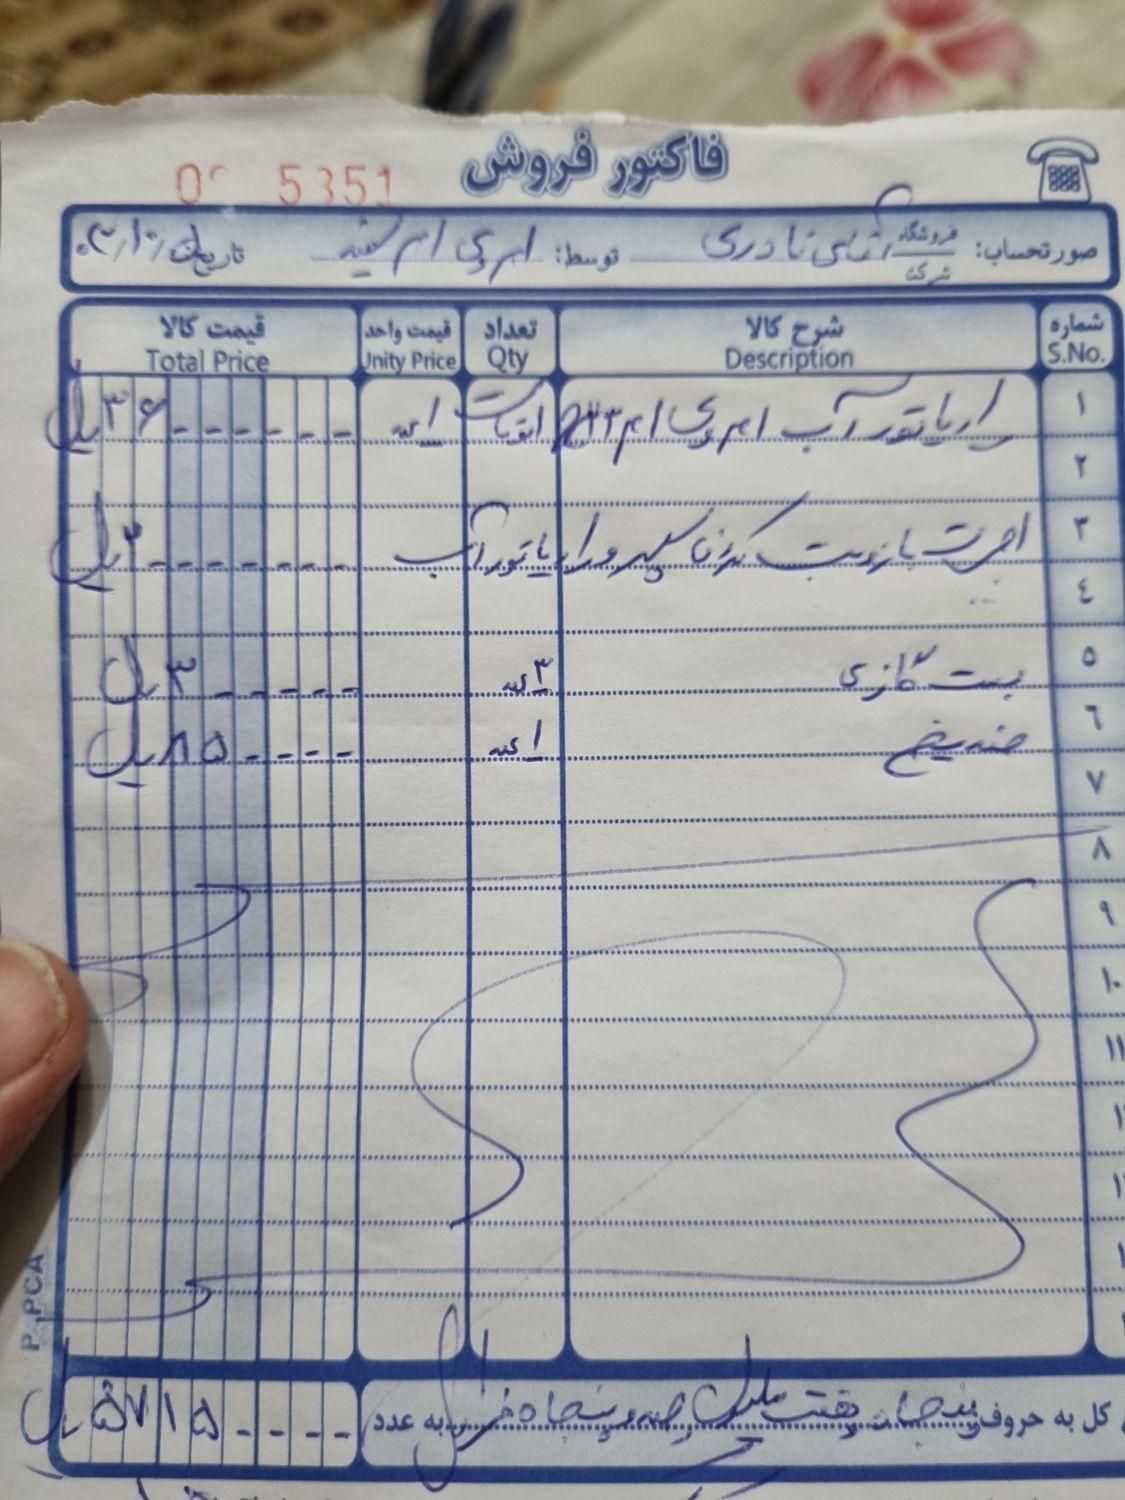 فاکتور فروش
5351
صورتحساب: فروشگاه شرکت آقای نادری توسط: ام وی ام سفید تاریخ:
شماره S.No. شرح کالا Description تعداد Qty قیمت واحد Unity Price قیمت کالا Total Price
۱ رادیاتور آب ام وی ام ۳۳ اتومات ۱ عدد ۳۶------ ریال
۲
۳ اجرت باز و بست کردن سپر و رادیاتور آب ------- ریال
٤
۵ بست گازی ۳ عدد ۳----- ریال
۶ ضد یخ ۱ عدد ۸۵---- ریال
۷
۸
۹
۱۰
۱۱
کل به حروف پنجاه و هفت میلیون و صد و پنجاه هزار ریال به عدد ۵۷۱۵---- ریال
PAPCA